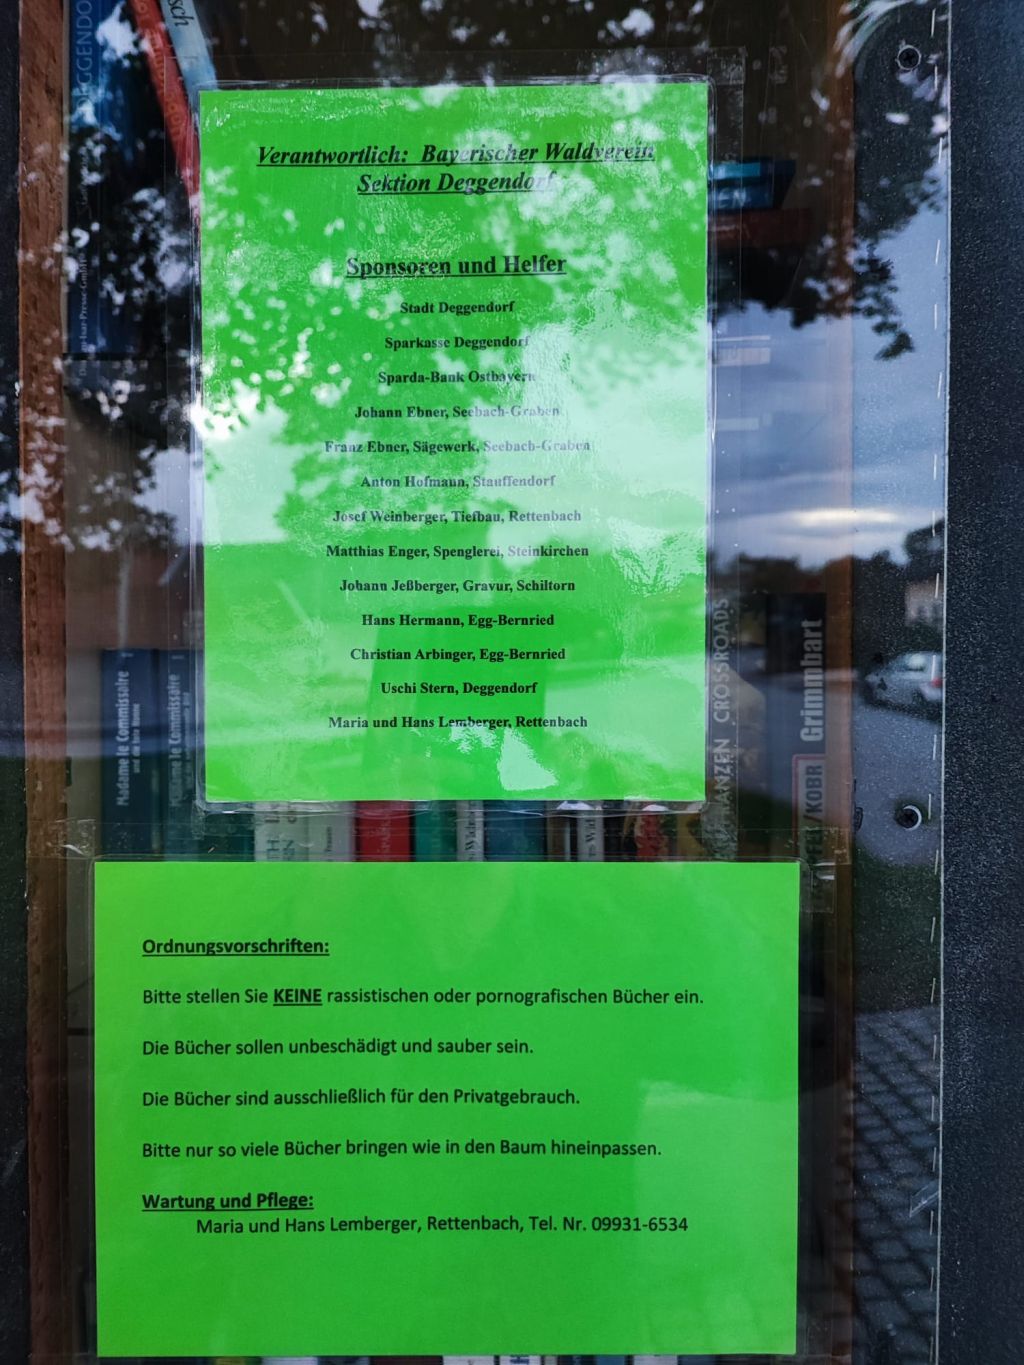 Verantwortlich: Bayerischer Waldverein
Sektion Deggendorf
Sponsoren und Helfer
Stadt Deggendorf
Sparkasse Deggendorf
Sparda-Bank Ostbayern
Johann Ebner, Seebach-Graben
Franz Ebner, Sägewerk, Seebach-Graben
Anton Hofmann, Stauffendorf
Josef Weinberger, Tiefbau, Rettenbach
Matthias Enger, Spenglerei, Steinkirchen
Johann Jeßberger, Gravur, Schiltorn
Hans Hermann, Egg-Bernried
Christian Arbinger, Egg-Bernried
Uschi Stern, Deggendorf
Maria und Hans Lemberger, Rettenbach
Madame le Commissaire
Madame le Commissaire
CROSSROADS
Grimmbart
/KOBR
Ordnungsvorschriften:
Bitte stellen Sie KEINE rassistischen oder pornografischen Bücher ein.
Die Bücher sollen unbeschädigt und sauber sein.
Die Bücher sind ausschließlich für den Privatgebrauch.
Bitte nur so viele Bücher bringen wie in den Baum hineinpassen.
Wartung und Pflege:
Maria und Hans Lemberger, Rettenbach, Tel. Nr. 09931-6534